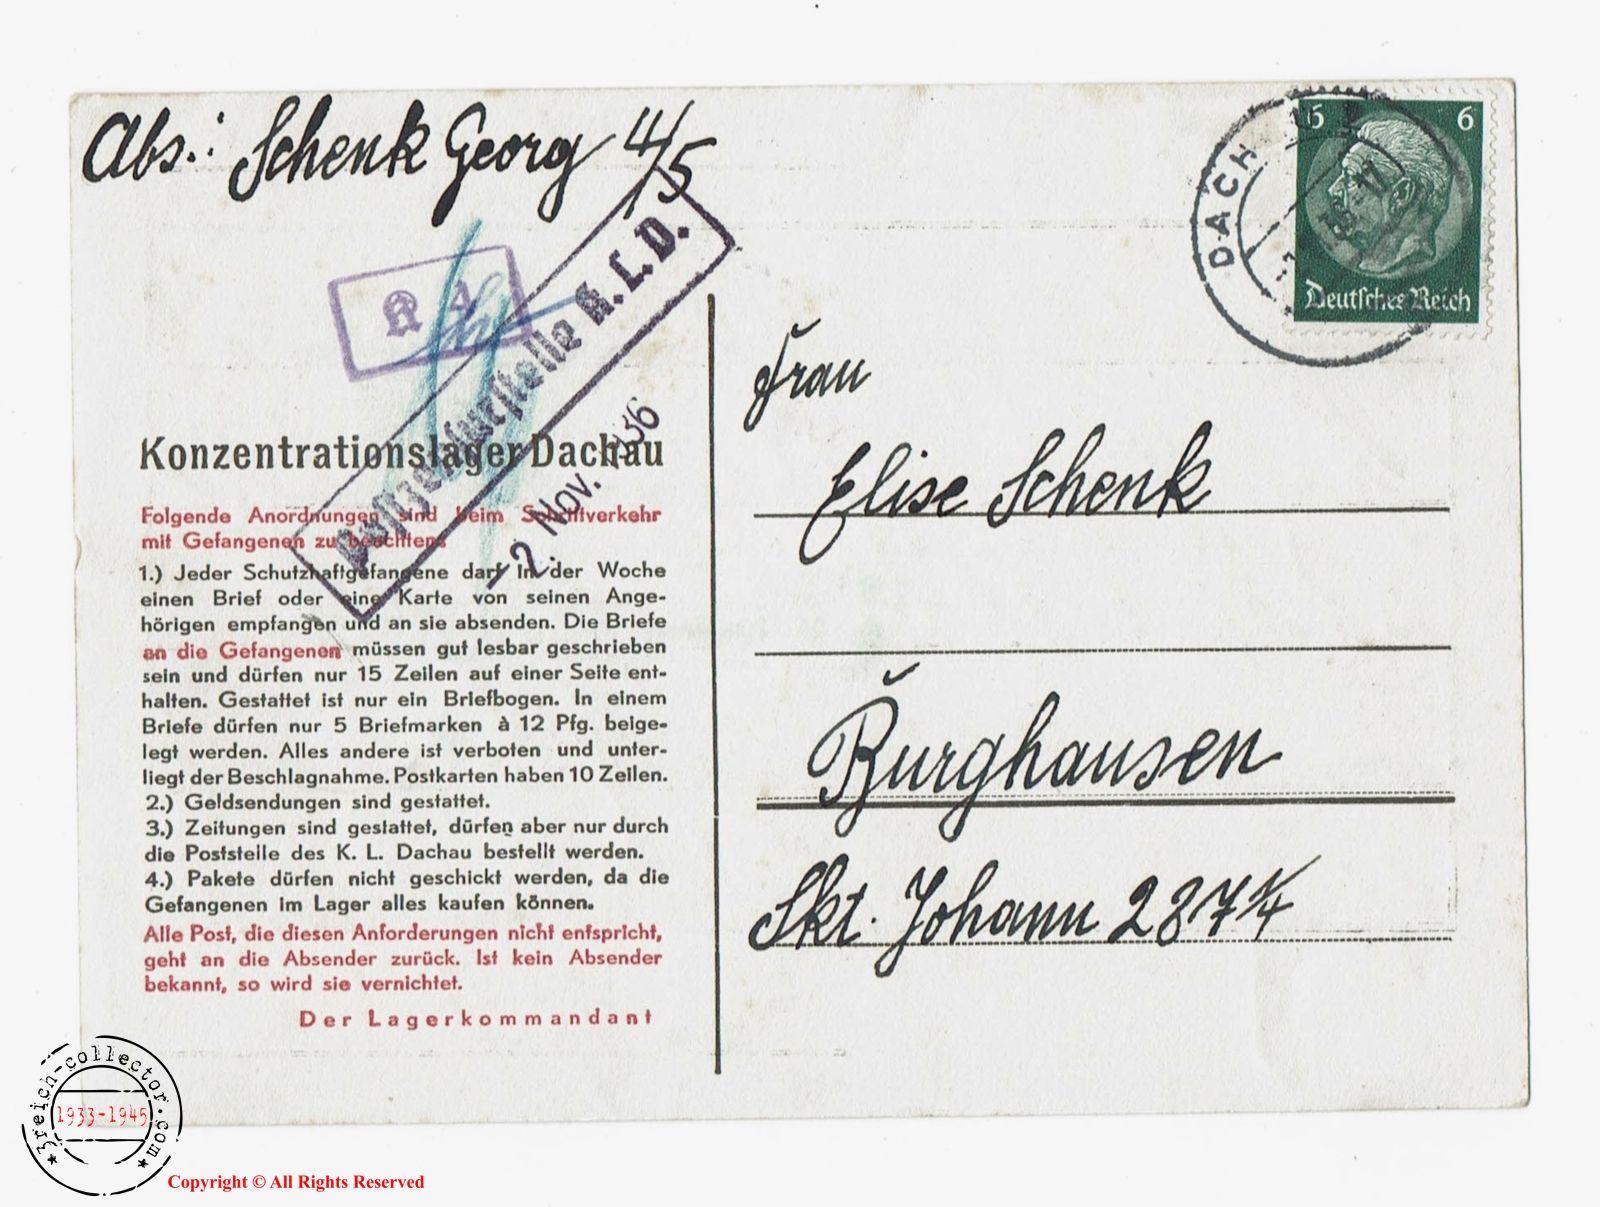 Abs.: Schenk Georg 4/5
DACH
6 6
Deutsches Reich
K
Postzensurstelle K.L.D.
-2. Nov. 1936
Konzentrationslager Dachau
Folgende Anordnungen sind beim Schriftverkehr
mit Gefangenen zu beachten:
1.) Jeder Schutzhaftgefangene darf in der Woche
einen Brief oder eine Karte von seinen Ange-
hörigen empfangen und an sie absenden. Die Briefe
an die Gefangenen müssen gut lesbar geschrieben
sein und dürfen nur 15 Zeilen auf einer Seite ent-
halten. Gestattet ist nur ein Briefbogen. In einem
Briefe dürfen nur 5 Briefmarken à 12 Pfg. beige-
legt werden. Alles andere ist verboten und unter-
liegt der Beschlagnahme. Postkarten haben 10 Zeilen.
2.) Geldsendungen sind gestattet.
3.) Zeitungen sind gestattet, dürfen aber nur durch
die Poststelle des K. L. Dachau bestellt werden.
4.) Pakete dürfen nicht geschickt werden, da die
Gefangenen im Lager alles kaufen können.
Alle Post, die diesen Anforderungen nicht entspricht,
geht an die Absender zurück. Ist kein Absender
bekannt, so wird sie vernichtet.
Der Lagerkommandant
Frau
Elise Schenk
Burghausen
Skt. Johann 287 1/4
3reich-collector.com
1933-1945
Copyright © All Rights Reserved